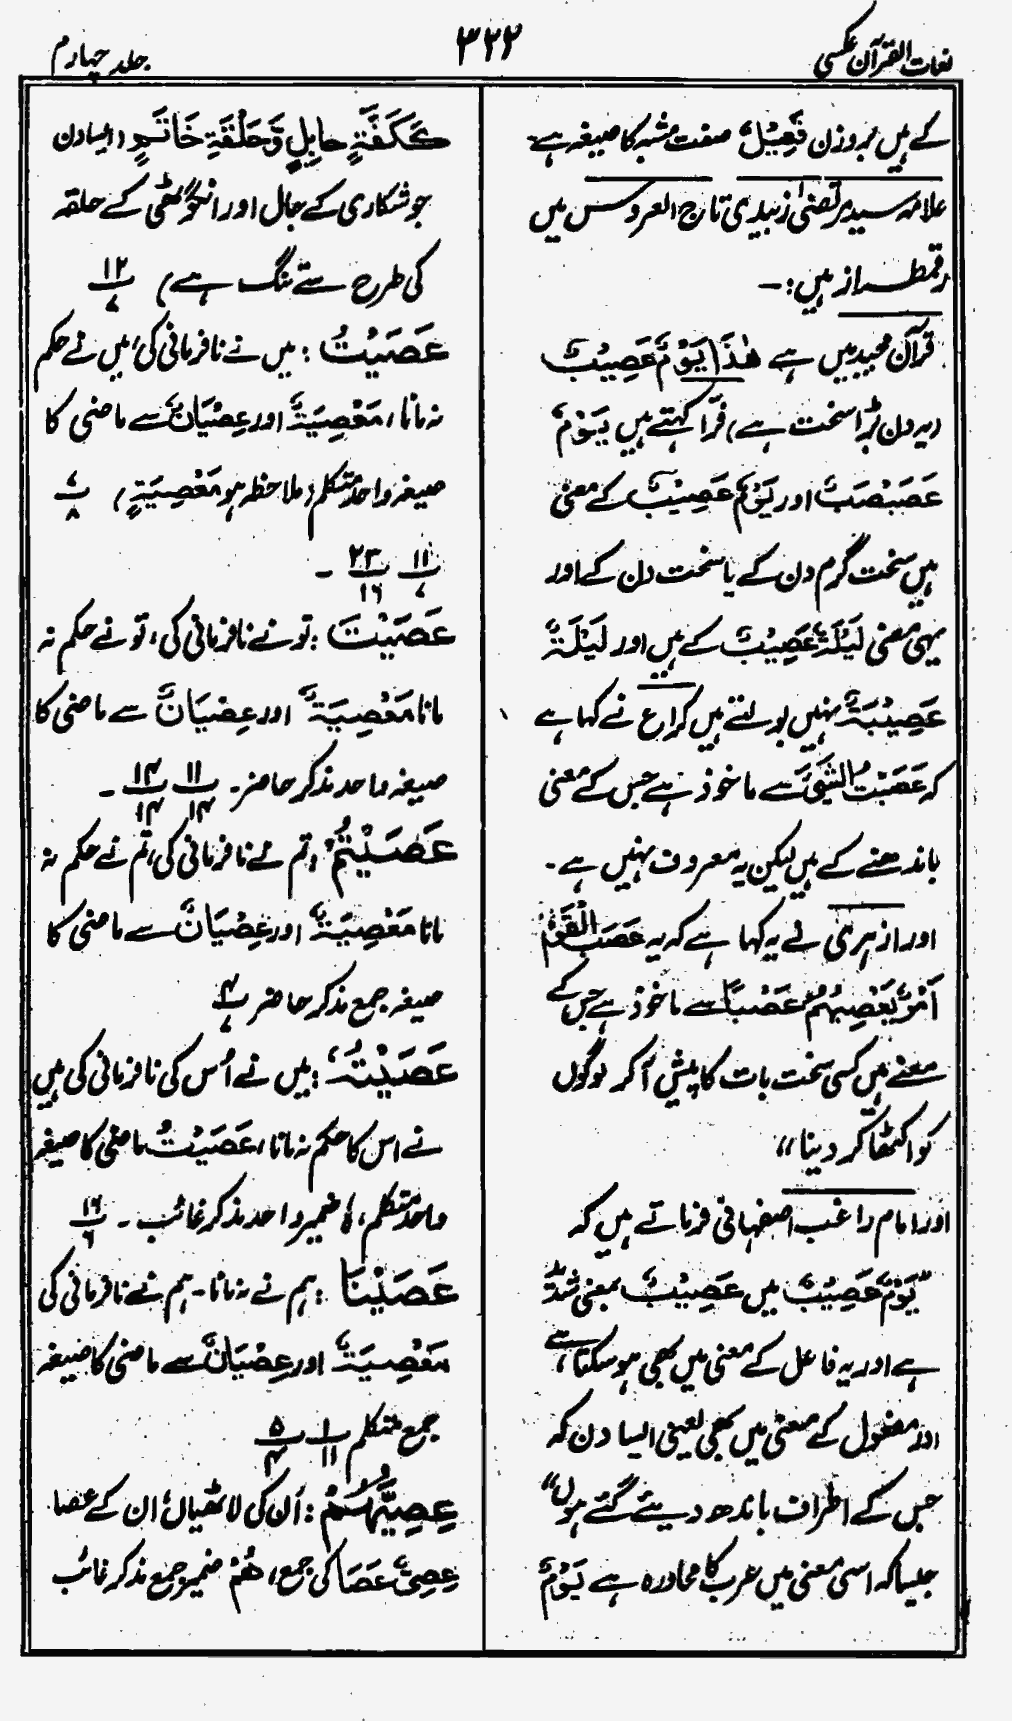 لغات القرآن عکسی
۳۲۲
جلد چہارم
کے ہیں بروزن فَعِیْلٌ صفت مشبہ کا صیغہ ہے۔
علامہ سید مرتضیٰ زبیدی تاج العروس میں
رقمطراز ہیں :۔
قرآن مجید میں ہے ھٰذَا یَوْمٌ عَصِیْبٌ
(یہ دن بڑا سخت ہے) فرّا کہتے ہیں یَوْمٌ
عَصَبْصَبٌ اور یَوْمٌ عَصِیْبٌ کے معنی
ہیں سخت گرم دن کے یا سخت دن کے اور
یہی معنی لَیْلَةٌ عَصِیْبٌ کے ہیں اور لَیْلَةٌ
عَصِیْبَةٌ نہیں بولتے ہیں کراع نے کہا ہے
کہ عَصَبْتُ الشَّیْءَ سے ماخوذ ہے جس کے معنی
باندھنے کے ہیں لیکن یہ معروف نہیں ہے۔
اور ازہری نے یہ کہا ہے کہ یہ عَصَبَ الْقَوْمَ
اَمْرٌ یَعْصِبُہُمْ عَصْبًا سے ماخوذ ہے جس کے
معنے ہیں کسی سخت بات کا پیش آکر لوگوں
کو اکٹھا کر دینا"
اور امام راغب اصفہانی فرماتے ہیں کہ
"یَوْمٌ عَصِیْبٌ میں عَصِیْبٌ بمعنی شَدِیْدٌ
ہے اور یہ فاعل کے معنی میں بھی ہو سکتا ہے،
اور مفعول کے معنی میں بھی یعنی ایسا دن کہ
جس کے اطراف باندھ دیئے گئے ہوں"
جیسا کہ اسی معنی میں عرب کا محاورہ ہے یَوْمٌ
کَکَفَّةِ حَابِلٍ وَّحَلْقَةِ خَاتَمٍ (ایسا دن
جو شکاری کے جال اور انگوٹھی کے حلقہ
کی طرح سے تنگ ہے) ۱۲/۷
عَصَیْتُ : میں نے نافرمانی کی، میں نے حکم
نہ مانا، مَعْصِیَةٌ اور عِصْیَانٌ سے ماضی کا
صیغہ واحد متکلم (ملاحظہ ہو مَعْصِیَةٍ) ۷/۸
۱۱/۷ ۲۳/۱۶ ۔
عَصَیْتَ : تو نے نافرمانی کی، تو نے حکم نہ
مانا مَعْصِیَةٌ اور عِصْیَانٌ سے ماضی کا
صیغہ واحد مذکر حاضر۔ ۱۱/۱۴ ۱۴/۱۴ ۔
عَصَیْتُمْ : تم نے نافرمانی کی، تم نے حکم نہ
مانا مَعْصِیَةٌ اور عِصْیَانٌ سے ماضی کا
صیغہ جمع مذکر حاضر ۴/۷
عَصَیْتُہٗ : میں نے اُس کی نافرمانی کی میں
نے اس کا حکم نہ مانا، عَصَیْتُ ماضی کا صیغہ
واحد متکلم، ہٗ ضمیر واحد مذکر غائب ۔ ۱۶/۶
عَصَیْنَا : ہم نے نہ مانا۔ ہم نے نافرمانی کی
مَعْصِیَةٌ اور عِصْیَانٌ سے ماضی کا صیغہ
جمع متکلم ۱/۱۱ ۵/۴
عِصِیُّہُمْ : اُن کی لاٹھیاں، ان کے عصا
عِصِیٌّ عَصَا کی جمع، ھُمْ ضمیر جمع مذکر غائب